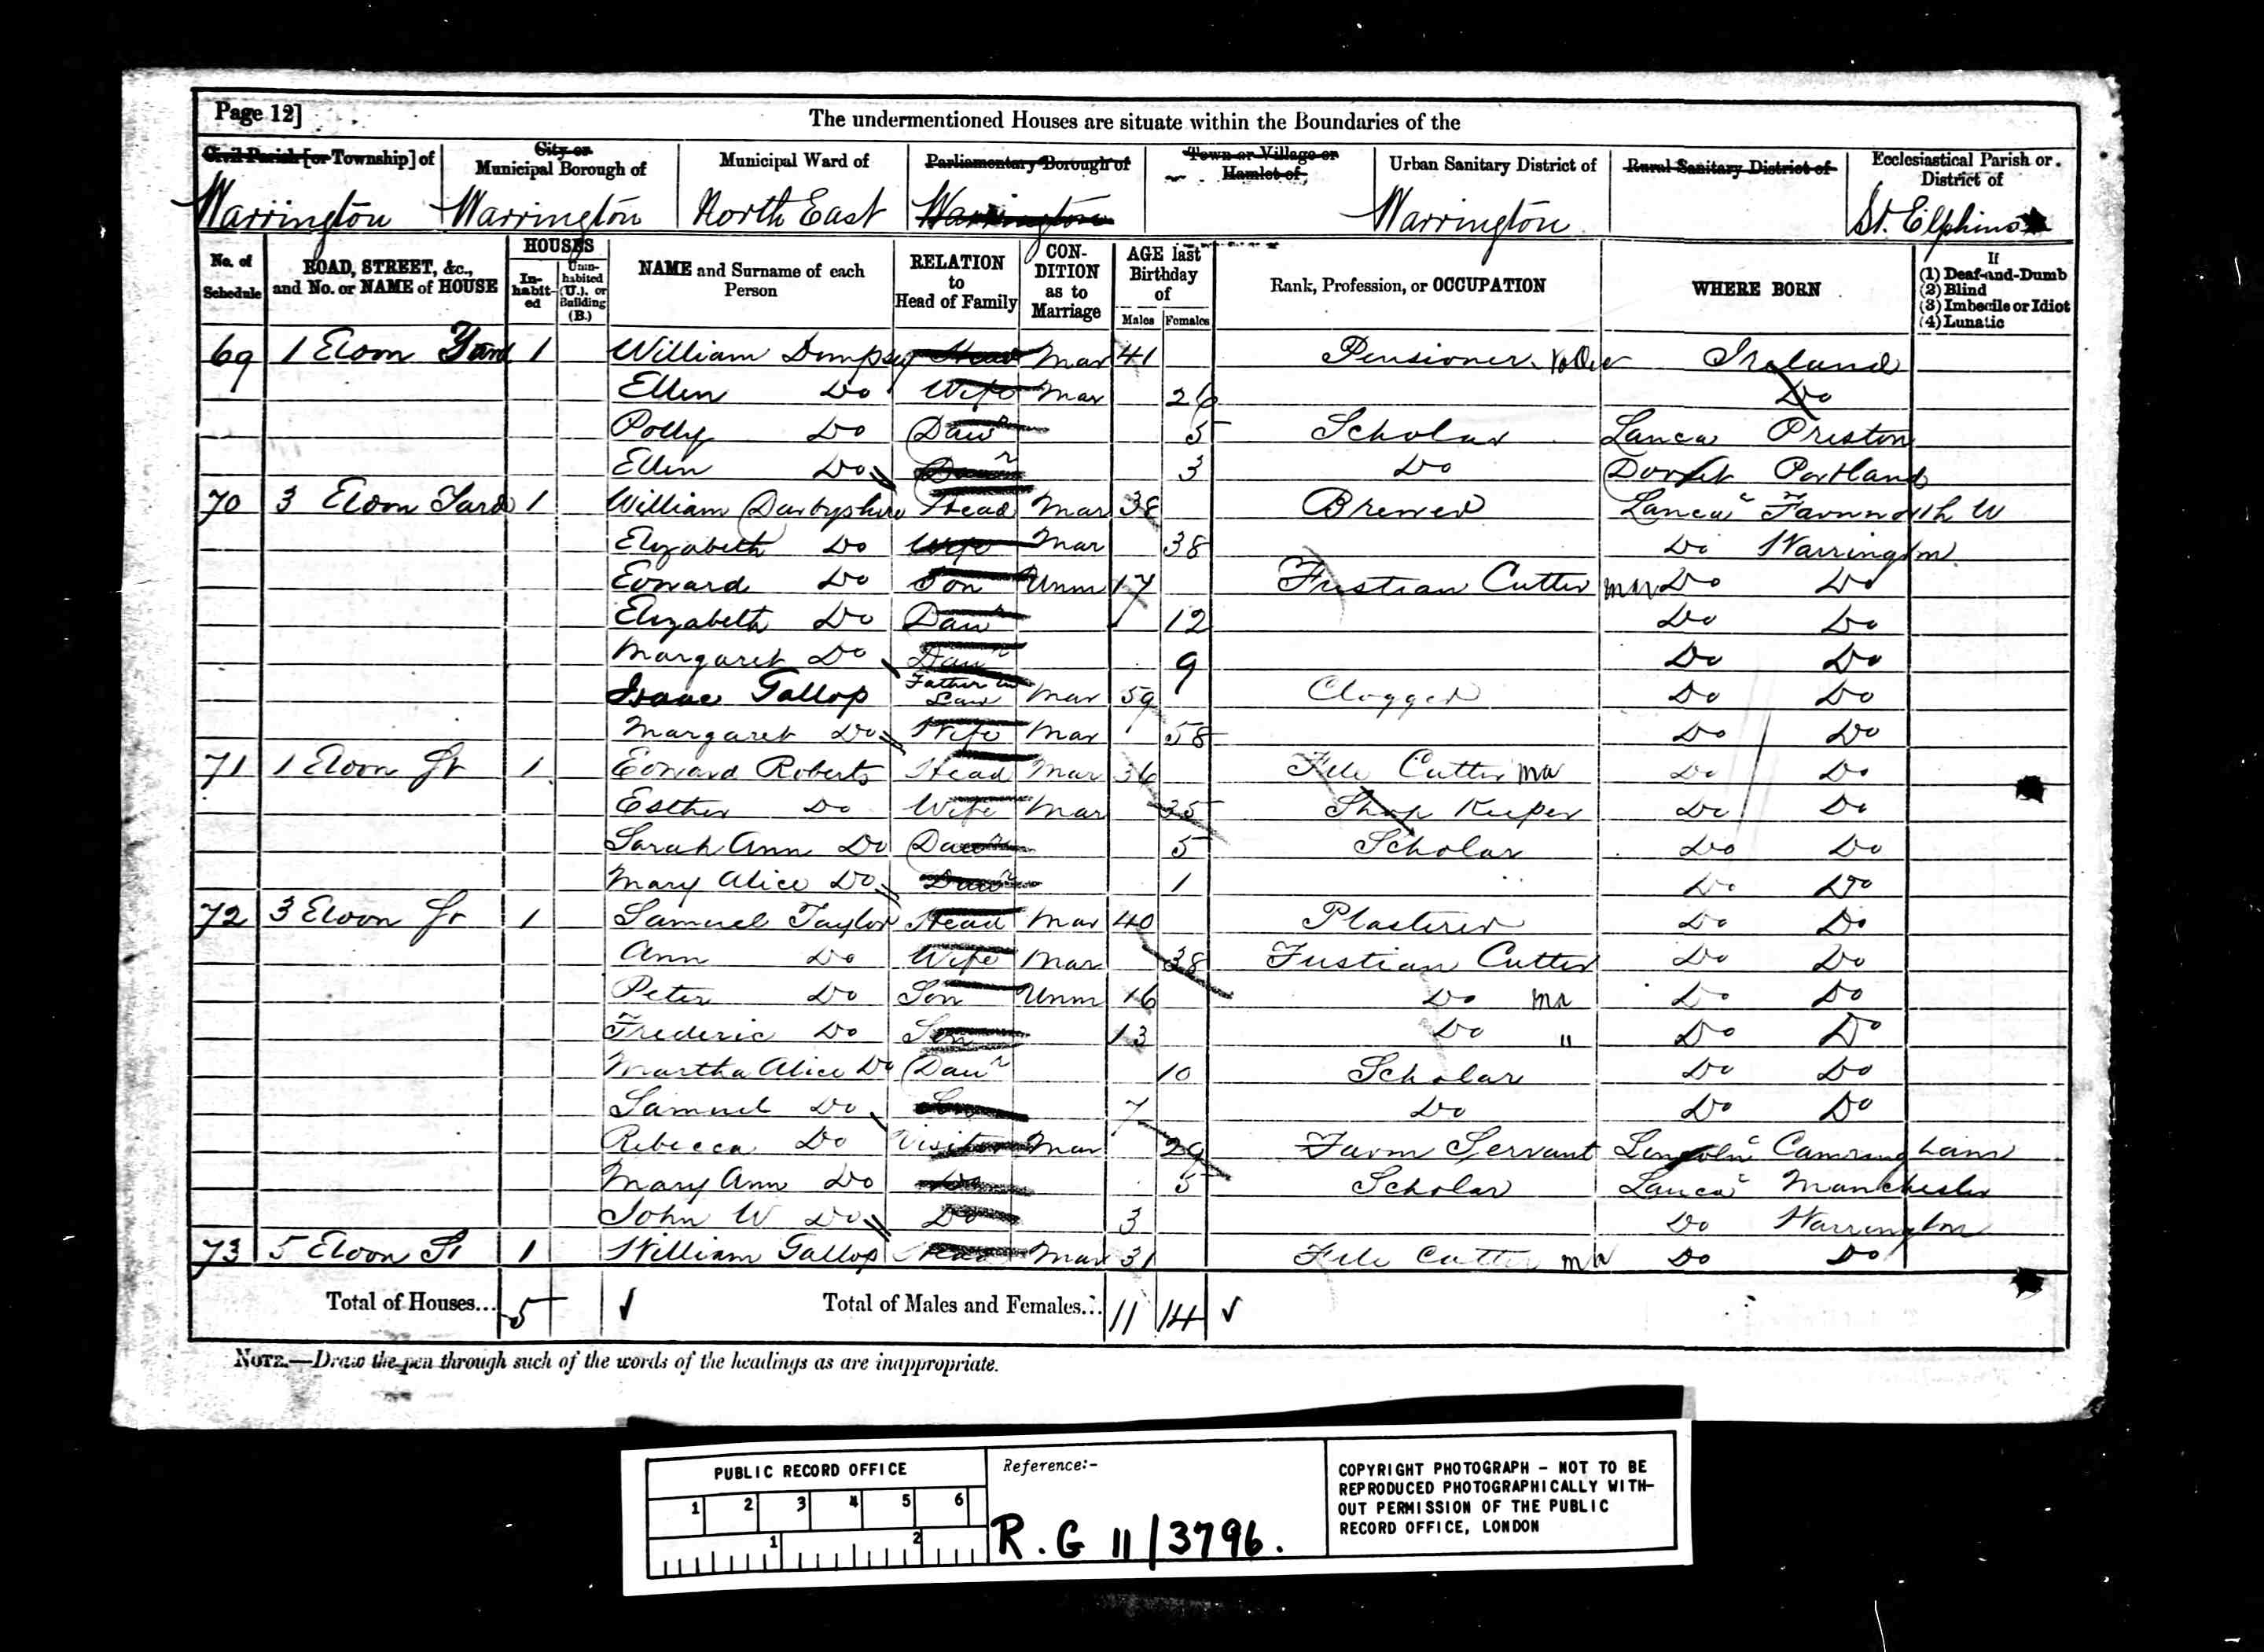 Page 12]
The undermentioned Houses are situate within the Boundaries of the
Civil Parish [or Township] of
City or Municipal Borough of
Municipal Ward of
Parliamentary Borough of
Town or Village or Hamlet of
Urban Sanitary District of
Rural Sanitary District of
Ecclesiastical Parish or District of
Warrington Warrington North East Warrington Warrington St. Elphins
No. of Schedule
ROAD, STREET, &c., and No. or NAME of HOUSE
HOUSES
In-habit-ed
Unin-habited (U.), or Building (B.)
NAME and Surname of each Person
RELATION to Head of Family
CON-DITION as to Marriage
AGE last Birthday of
Males Females
Rank, Profession, or OCCUPATION
WHERE BORN
If
(1) Deaf-and-Dumb
(2) Blind
(3) Imbecile or Idiot
(4) Lunatic
69 1 Eldon Yard 1 William Dempsey Head Mar 41 Pensioner Ireland
Ellen Do Wife Mar 26 Do
Polly Do Daur 5 Scholar Lanca Preston
Ellen Do Daur 3 Do Dorset Portland
70 3 Eldon Yard 1 William Darbyshire Head Mar 38 Brewer Lanca W
Elizabeth Do Wife Mar 38 Do Warrington
Edward Do Son Unm 17 Fustian Cutter Do Do
Elizabeth Do Daur 12 Do Do
Margaret Do Daur 9 Do Do
Isaac Gallop Father in Law Mar 59 Clogger Do Do
Margaret Do Wife Mar 58 Do Do
71 1 Eldon St 1 Edward Roberts Head Mar 36 File Cutter Do Do
Esther Do Wife Mar 35 Shop Keeper Do Do
Sarah Ann Do Daur 5 Scholar Do Do
Mary Alice Do Daur 1 Do Do
72 3 Eldon St 1 Samuel Taylor Head Mar 40 Plasterer Do Do
Ann Do Wife Mar 38 Fustian Cutter Do Do
Peter Do Son Unm 16 Do Do Do
Frederic Do Son 13 Do " Do Do
Martha Alice Do Daur 10 Scholar Do Do
Samuel Do Son 7 Do Do Do
Rebecca Do Visitor Mar 29 Farm Servant Lincoln Cammringham
Mary Ann Do Do 5 Scholar Lanca Manchester
John W Do Do 3 Do Warrington
73 5 Eldon St 1 William Gallop Head Mar 31 File Cutter Do Do
Total of Houses... 5 Total of Males and Females... 11 14
NOTE.—Draw the pen through such of the words of the headings as are inappropriate.
PUBLIC RECORD OFFICE
1 2 3 4 5 6
1 2
Reference:-
R.G 11/3796.
COPYRIGHT PHOTOGRAPH - NOT TO BE
REPRODUCED PHOTOGRAPHICALLY WITH-
OUT PERMISSION OF THE PUBLIC
RECORD OFFICE, LONDON